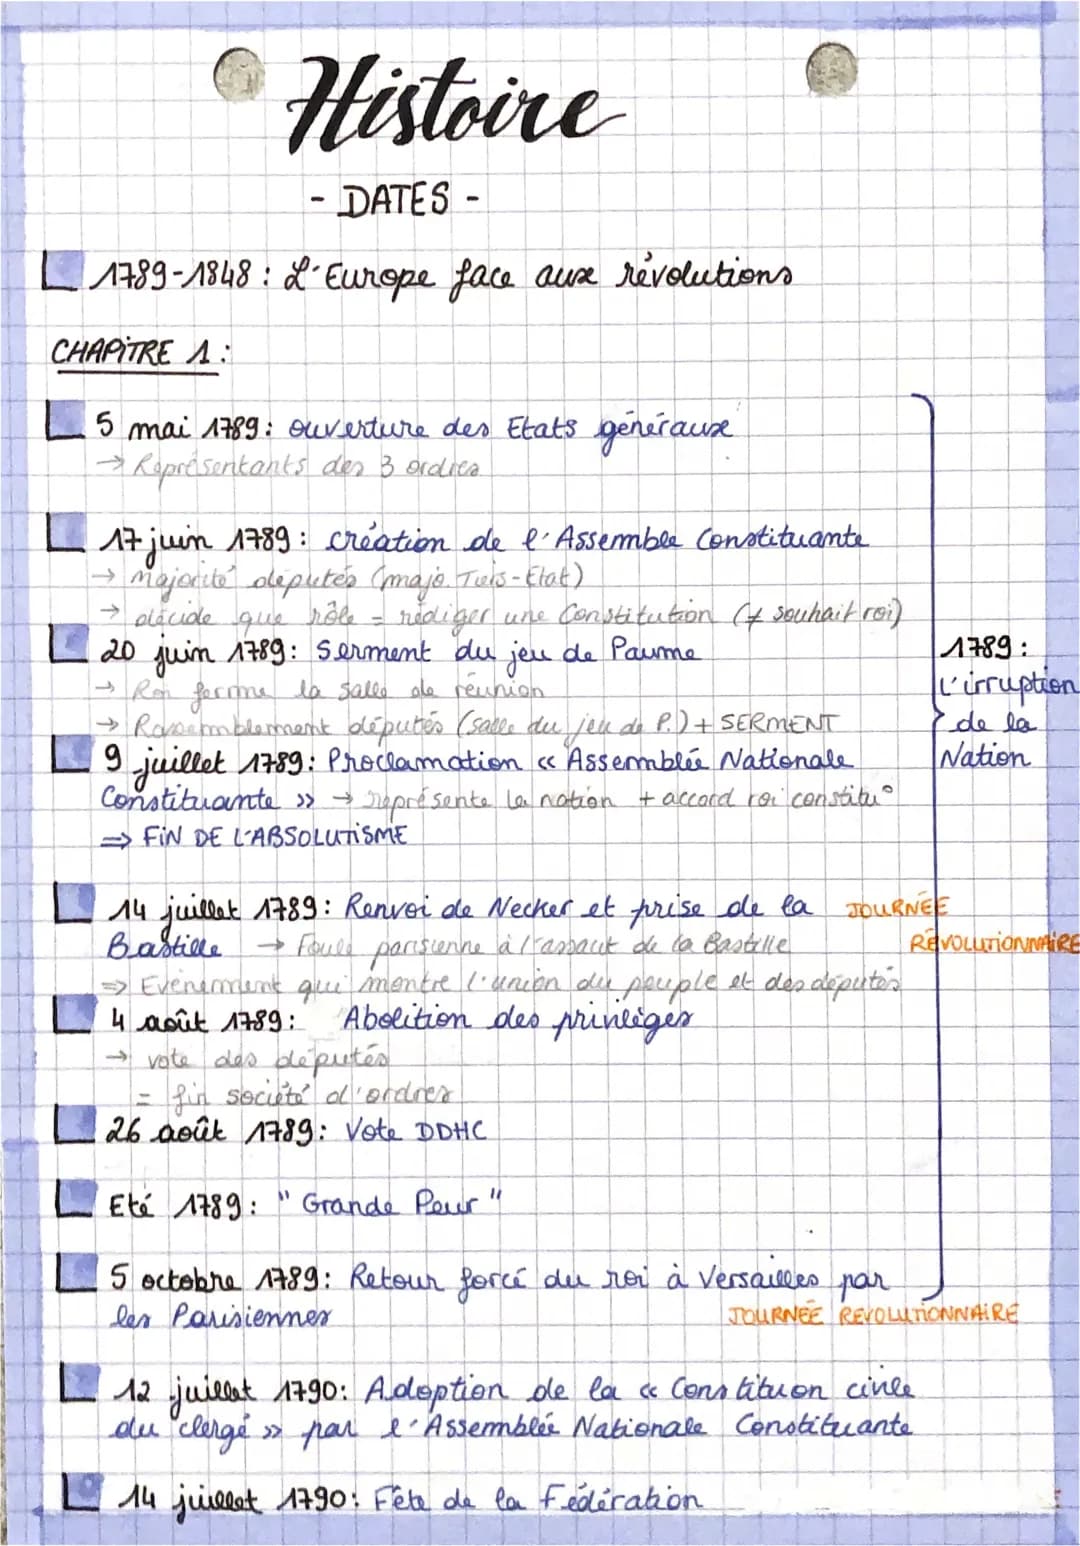 Histoire
- DATES -
1789-1848 : L'Europe face aux révolutions
CHAPITRE 1 :
5 mai 1789 : ouverture des Etats généraux
→ Représentants des 3 ordres
17 juin 1789 : création de l'Assemblée Constituante
→ Majorité députés (majo. Tiers-Etat)
→ décide que rôle = rédiger une Constitution (≠ souhait roi)
20 juin 1789 : Serment du jeu de Paume
→ Roi ferme la salle de réunion
→ Rassemblement députés (salle du jeu de P.) + SERMENT
9 juillet 1789 : Proclamation « Assemblée Nationale
Constituante » → représente la nation + accord roi constitu°
⇒ FIN DE L'ABSOLUTISME
1789 :
L'irruption
de la
Nation
14 juillet 1789 : Renvoi de Necker et prise de la JOURNÉE
Bastille → Foule parisienne à l'assaut de la Bastille RÉVOLUTIONNAIRE
⇒ Evènement qui montre l'union du peuple et des députés
4 août 1789 : Abolition des privilèges
→ vote des députés
= fin société d'ordres
26 août 1789 : Vote DDHC
Eté 1789 : "Grande Peur"
5 octobre 1789 : Retour forcé du roi à Versailles par
les Parisiennes JOURNÉE REVOLUTIONNAIRE
12 juillet 1790 : Adoption de la « Constituon civile
du clergé » par l'Assemblée Nationale Constituante
14 juillet 1790 : Fête de la Fédération